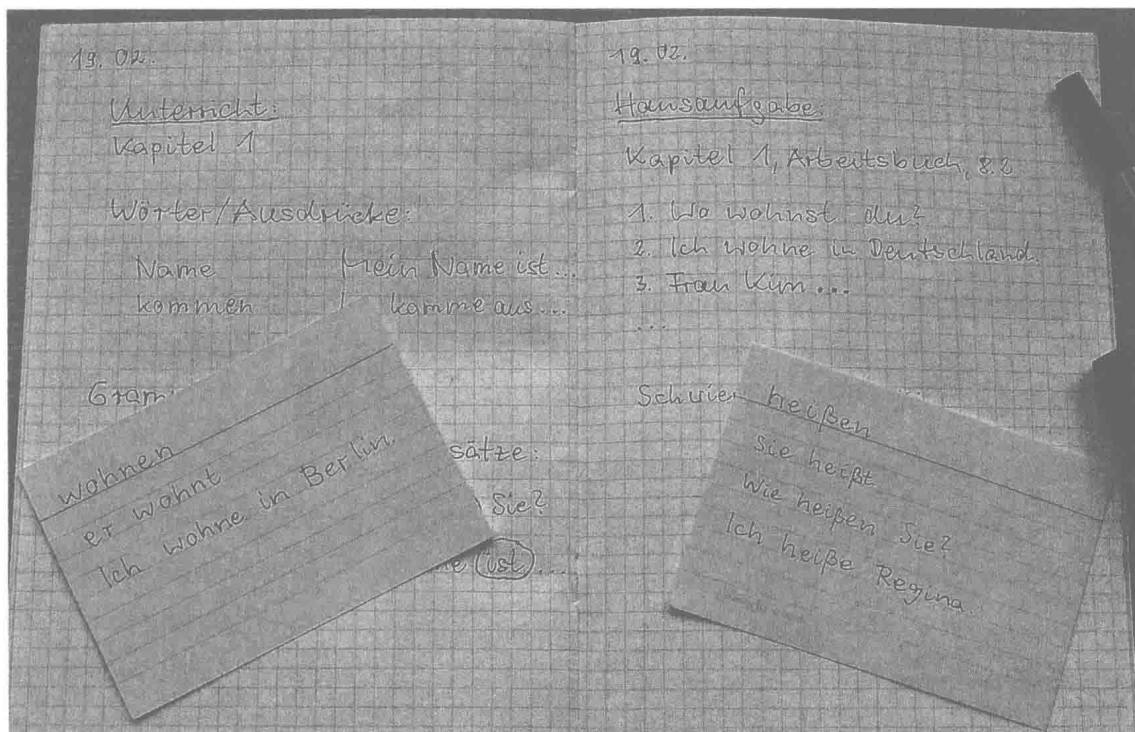 19. 02.
Unterricht:
Kapitel 1
Wörter/Ausdrücke:
Name Mein Name ist...
kommen komme aus...
sätze:
Sie?
ist ...
wohnen
er wohnt
Ich wohne in Berlin.
19. 02.
Hausaufgabe:
Kapitel 1, Arbeitsbuch,
1. Wo wohnst du?
2. Ich wohne in Deutschland.
3. Frau Kim ...
...
heißen
sie heißt
Wie heißen Sie?
Ich heiße Regina.